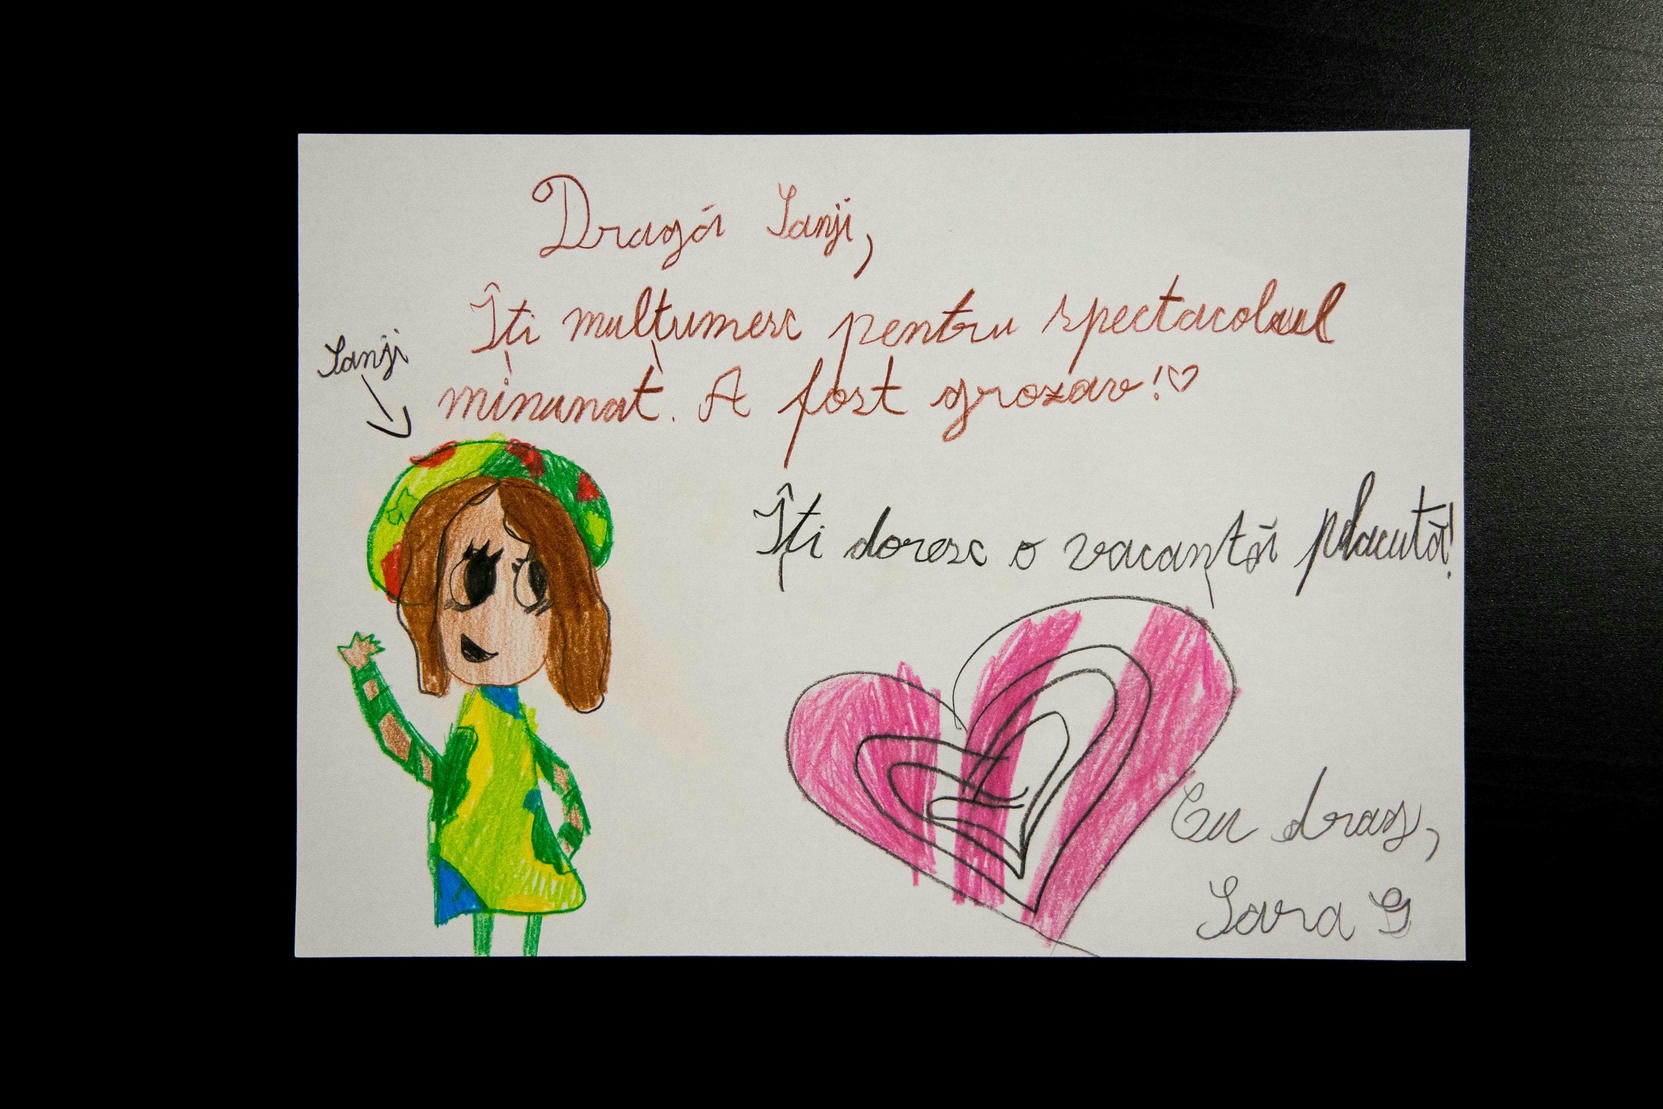 Dragă Sanji,
Îți mulțumesc pentru spectacolul
minunat. A fost grozav!♡
Sanji
Îți doresc o vacanță plăcută!
Cu drag,
Sara G